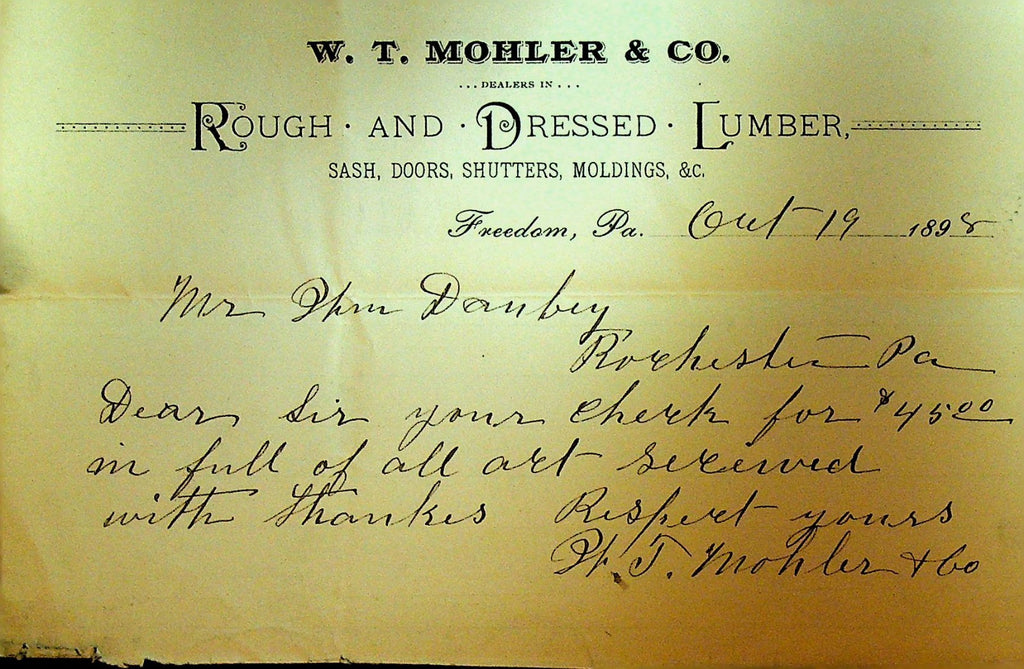 W. T. MOHLER & CO.
... DEALERS IN ...
ROUGH · AND · DRESSED · LUMBER,
SASH, DOORS, SHUTTERS, MOLDINGS, &C.
Freedom, Pa. Oct 19 1898
Mr Wm Danbey
Rochester Pa
Dear Sir your check for $4500
in full of all act received
with thankes Respect yours
W. T. Mohler & Co